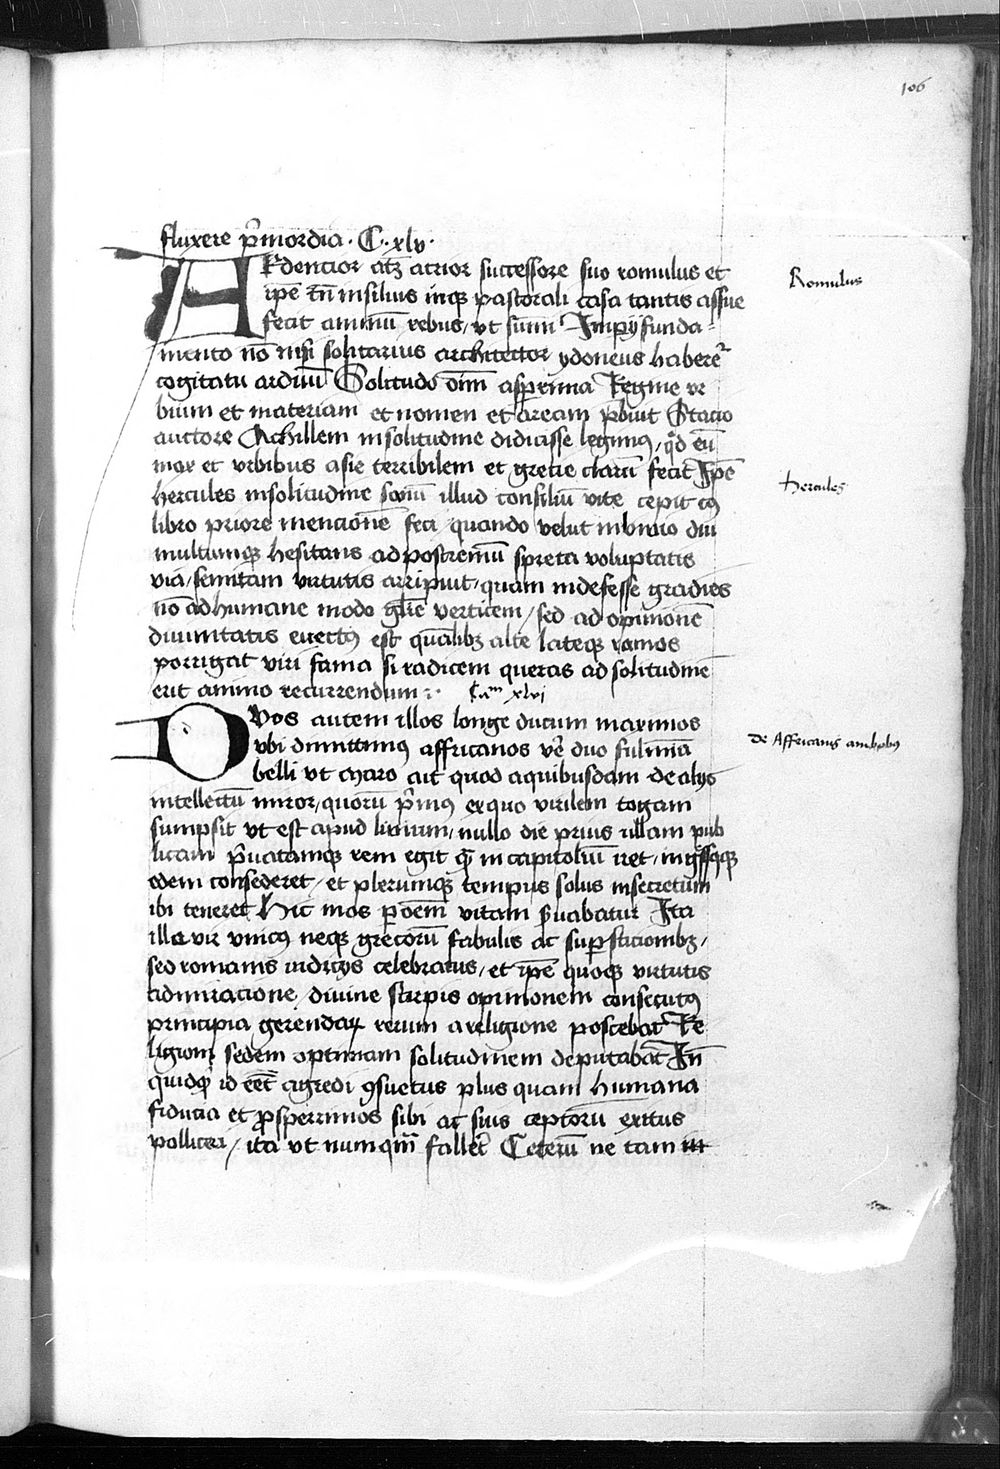 106
fluxere p̄mordia · C · xlv ·
Ardencior atqꝫ acrior successore suo romulus et
ip̄e tn̄ in siluis inqꝫ pastorali casa tantis assue
fecit animū rebus / vt summi Impij funda-
mento nō nisi solitarius architector ydoneus haberet᷑
cogitatu arduū Solitudo oīm asperrima Regine vr
bium et materiam et nomen et aream p̄buit Stacio
auctore Achillem in solitudine didicisse legimꝰ / qd̓ eū
mox et vrbibus asie terribilem et grecie clarū fecit Ip̄e
hercules in solitudine sanū illud consiliū vite cepit cꝰ
libro priore mencionē feci quando velut in biuio diu
multumqꝫ hesitans ad postremū spreta voluptatis
via / semitam virtutis arripuit / quam indefesse gradiēs
nō ad humane modo gl̄ie verticem / sed ad opinionē
diuinitatis euectꝰ est qualibꝫ alte lateqꝫ ramos
porrigat viri fama si radicem queras ad solitudinē
erit animo recurrendum : · Cam xlvj
Duos autem illos longe ducum maximos
vbi dimittimꝰ affricanos vē duo fulmina
belli vt maro ait quod a quibusdam de alijs
intellectū miror / quorū p̄mꝰ ex quo virilem togam
sumpsit vt est apud liuium / nullo die prius illam pub
licam p̄uatamqꝫ rem egit qͫ in capitoliū iret / ingressusqꝫ
edem consederet / et plerumqꝫ tempus solus in secretum
ibi teneret Hic mos p oēm vitam s̓uabatur Ita
ille vir vnicꝰ neqꝫ grecorū fabulis ac supsticionibꝫ /
sed romanis iudicijs celebratus / et ip̄e quoqꝫ virtutis
admiracione / diuine stirpis opinionem consecutꝰ
principia gerendaꝝ rerum a religione poscebat Re
ligioni sedem optimam solitudinem deputabat In̄
quidqͥd id eēt agredi ꝯsuetus plus quam humana
fiducia et ꝓsperrimos sibi ac suis ceptorū exitus
polliceri / ita vt numqͫ fallet᷑ Ceterū ne tam in
Romulus
Hercules
De Affricanis ambobꝰ